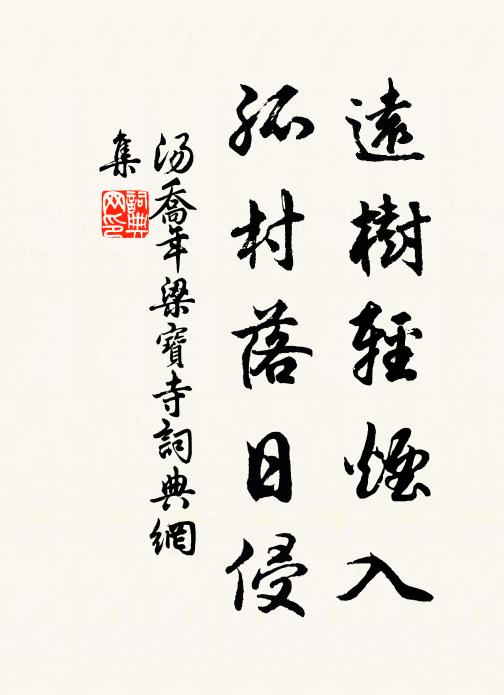 遠樹輕煙入
孤村落日侵
汤喬年梁寶寺詞典網
集
詞典
网印